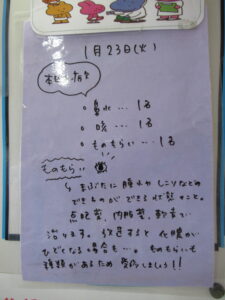 1月23日(火)
本日の病欠
・鼻水…1名
・咳…1名
・ものもらい…1名
ものもらい
↳まぶたに腫れや しこりなどの
できものができる状態のこと。
点眼薬、内服薬、軟膏で
治ります。放置すると 化膿が
ひどくなる場合も…。ものもらいも
種類があるため 受診しましょう!!